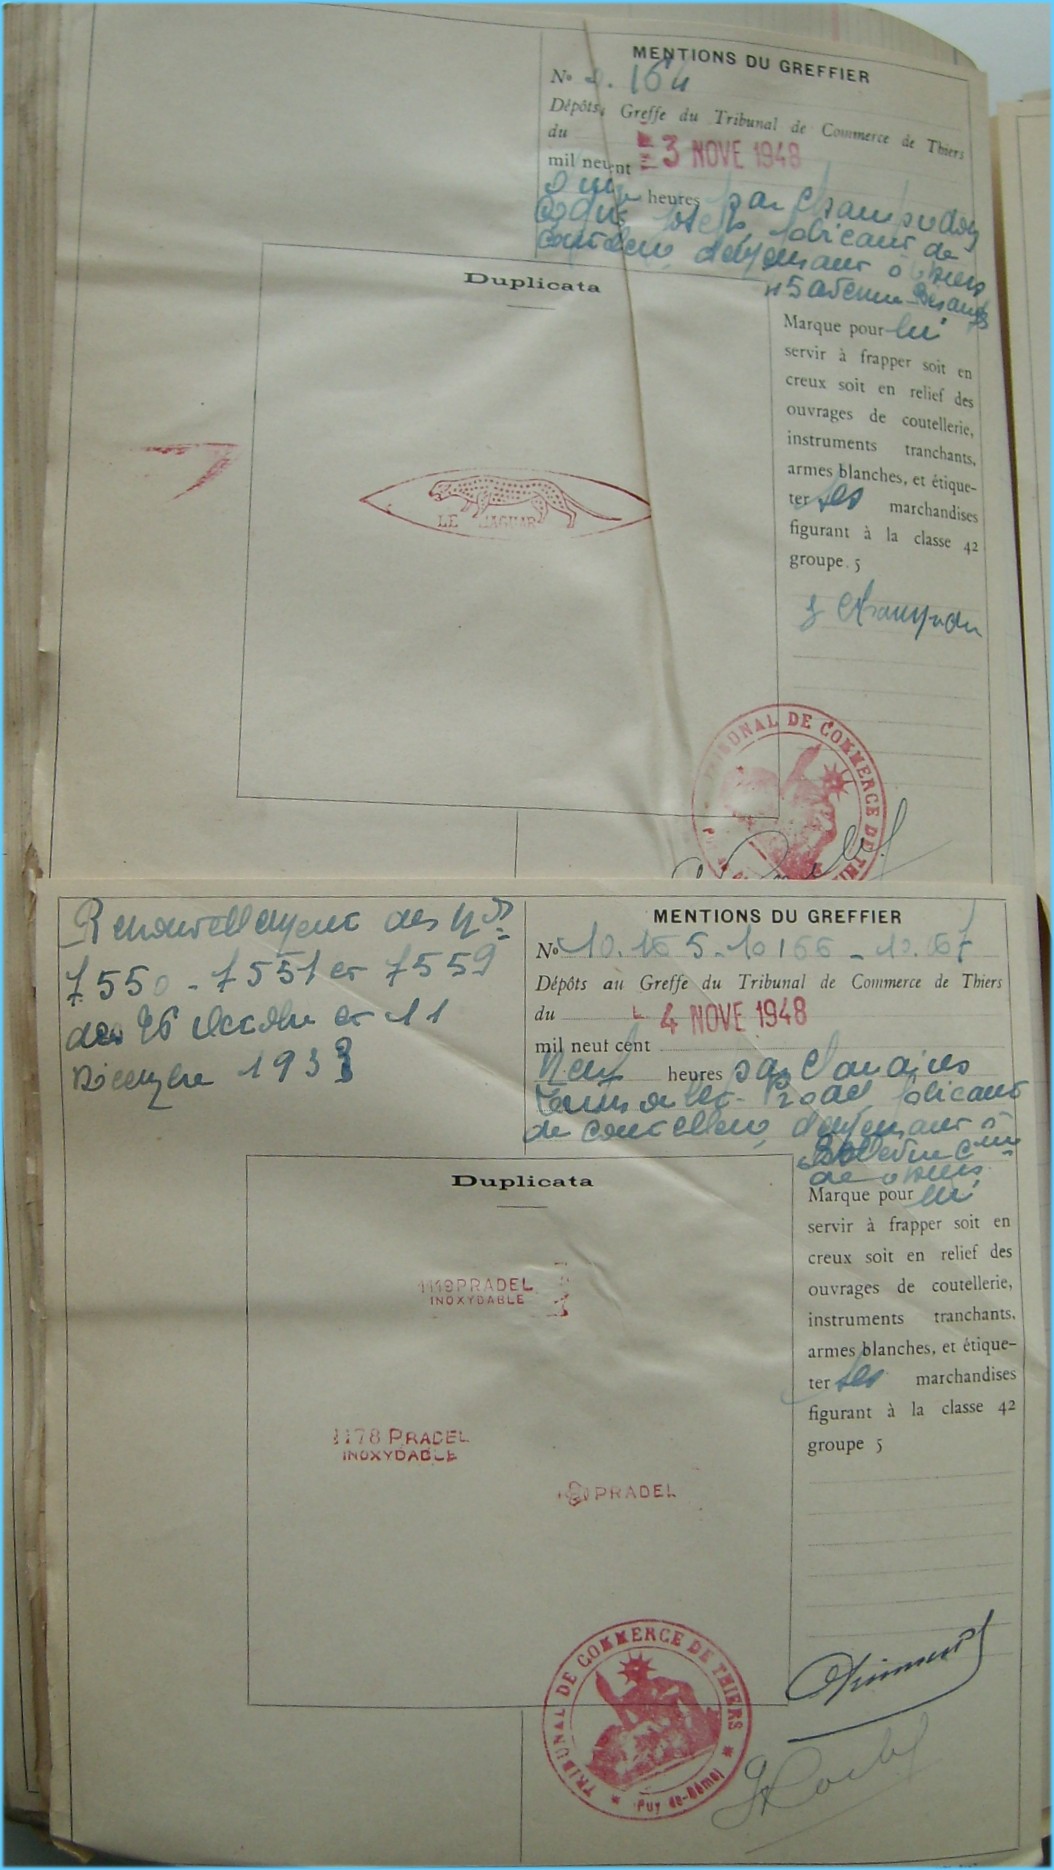 MENTIONS DU GREFFIER
No 164
Dépôts Greffe du Tribunal de Commerce de Thiers
du 3 NOVE 1948
mil neu nt
heures par
fabricant de
demeurant à Thiers
Duplicata
Marque pour lui
servir à frapper soit en
creux soit en relief des
ouvrages de coutellerie,
instruments tranchants,
armes blanches, et étique-
ter ses marchandises
figurant à la classe 42
groupe 5
LE JAGUAR
TRIBUNAL DE COMMERCE DE THI
Renouvellement des Nos
7550 - 7551 et 7559
des 26 Octobre et 11
Décembre 1933
MENTIONS DU GREFFIER
No 10.165 - 10166 - 10.167
Dépôts au Greffe du Tribunal de Commerce de Thiers
du 4 NOVE 1948
mil neuf cent
Neuf heures par
fabricant
de coutellerie, demeurant à
de Thiers
Duplicata
Marque pour lui
servir à frapper soit en
creux soit en relief des
ouvrages de coutellerie,
instruments tranchants,
armes blanches, et étique-
ter ses marchandises
figurant à la classe 42
groupe 5
1119 PRADEL
INOXYDABLE
1178 PRADEL
INOXYDABLE
PRADEL
TRIBUNAL DE COMMERCE DE THIERS
Puy de-Dôme